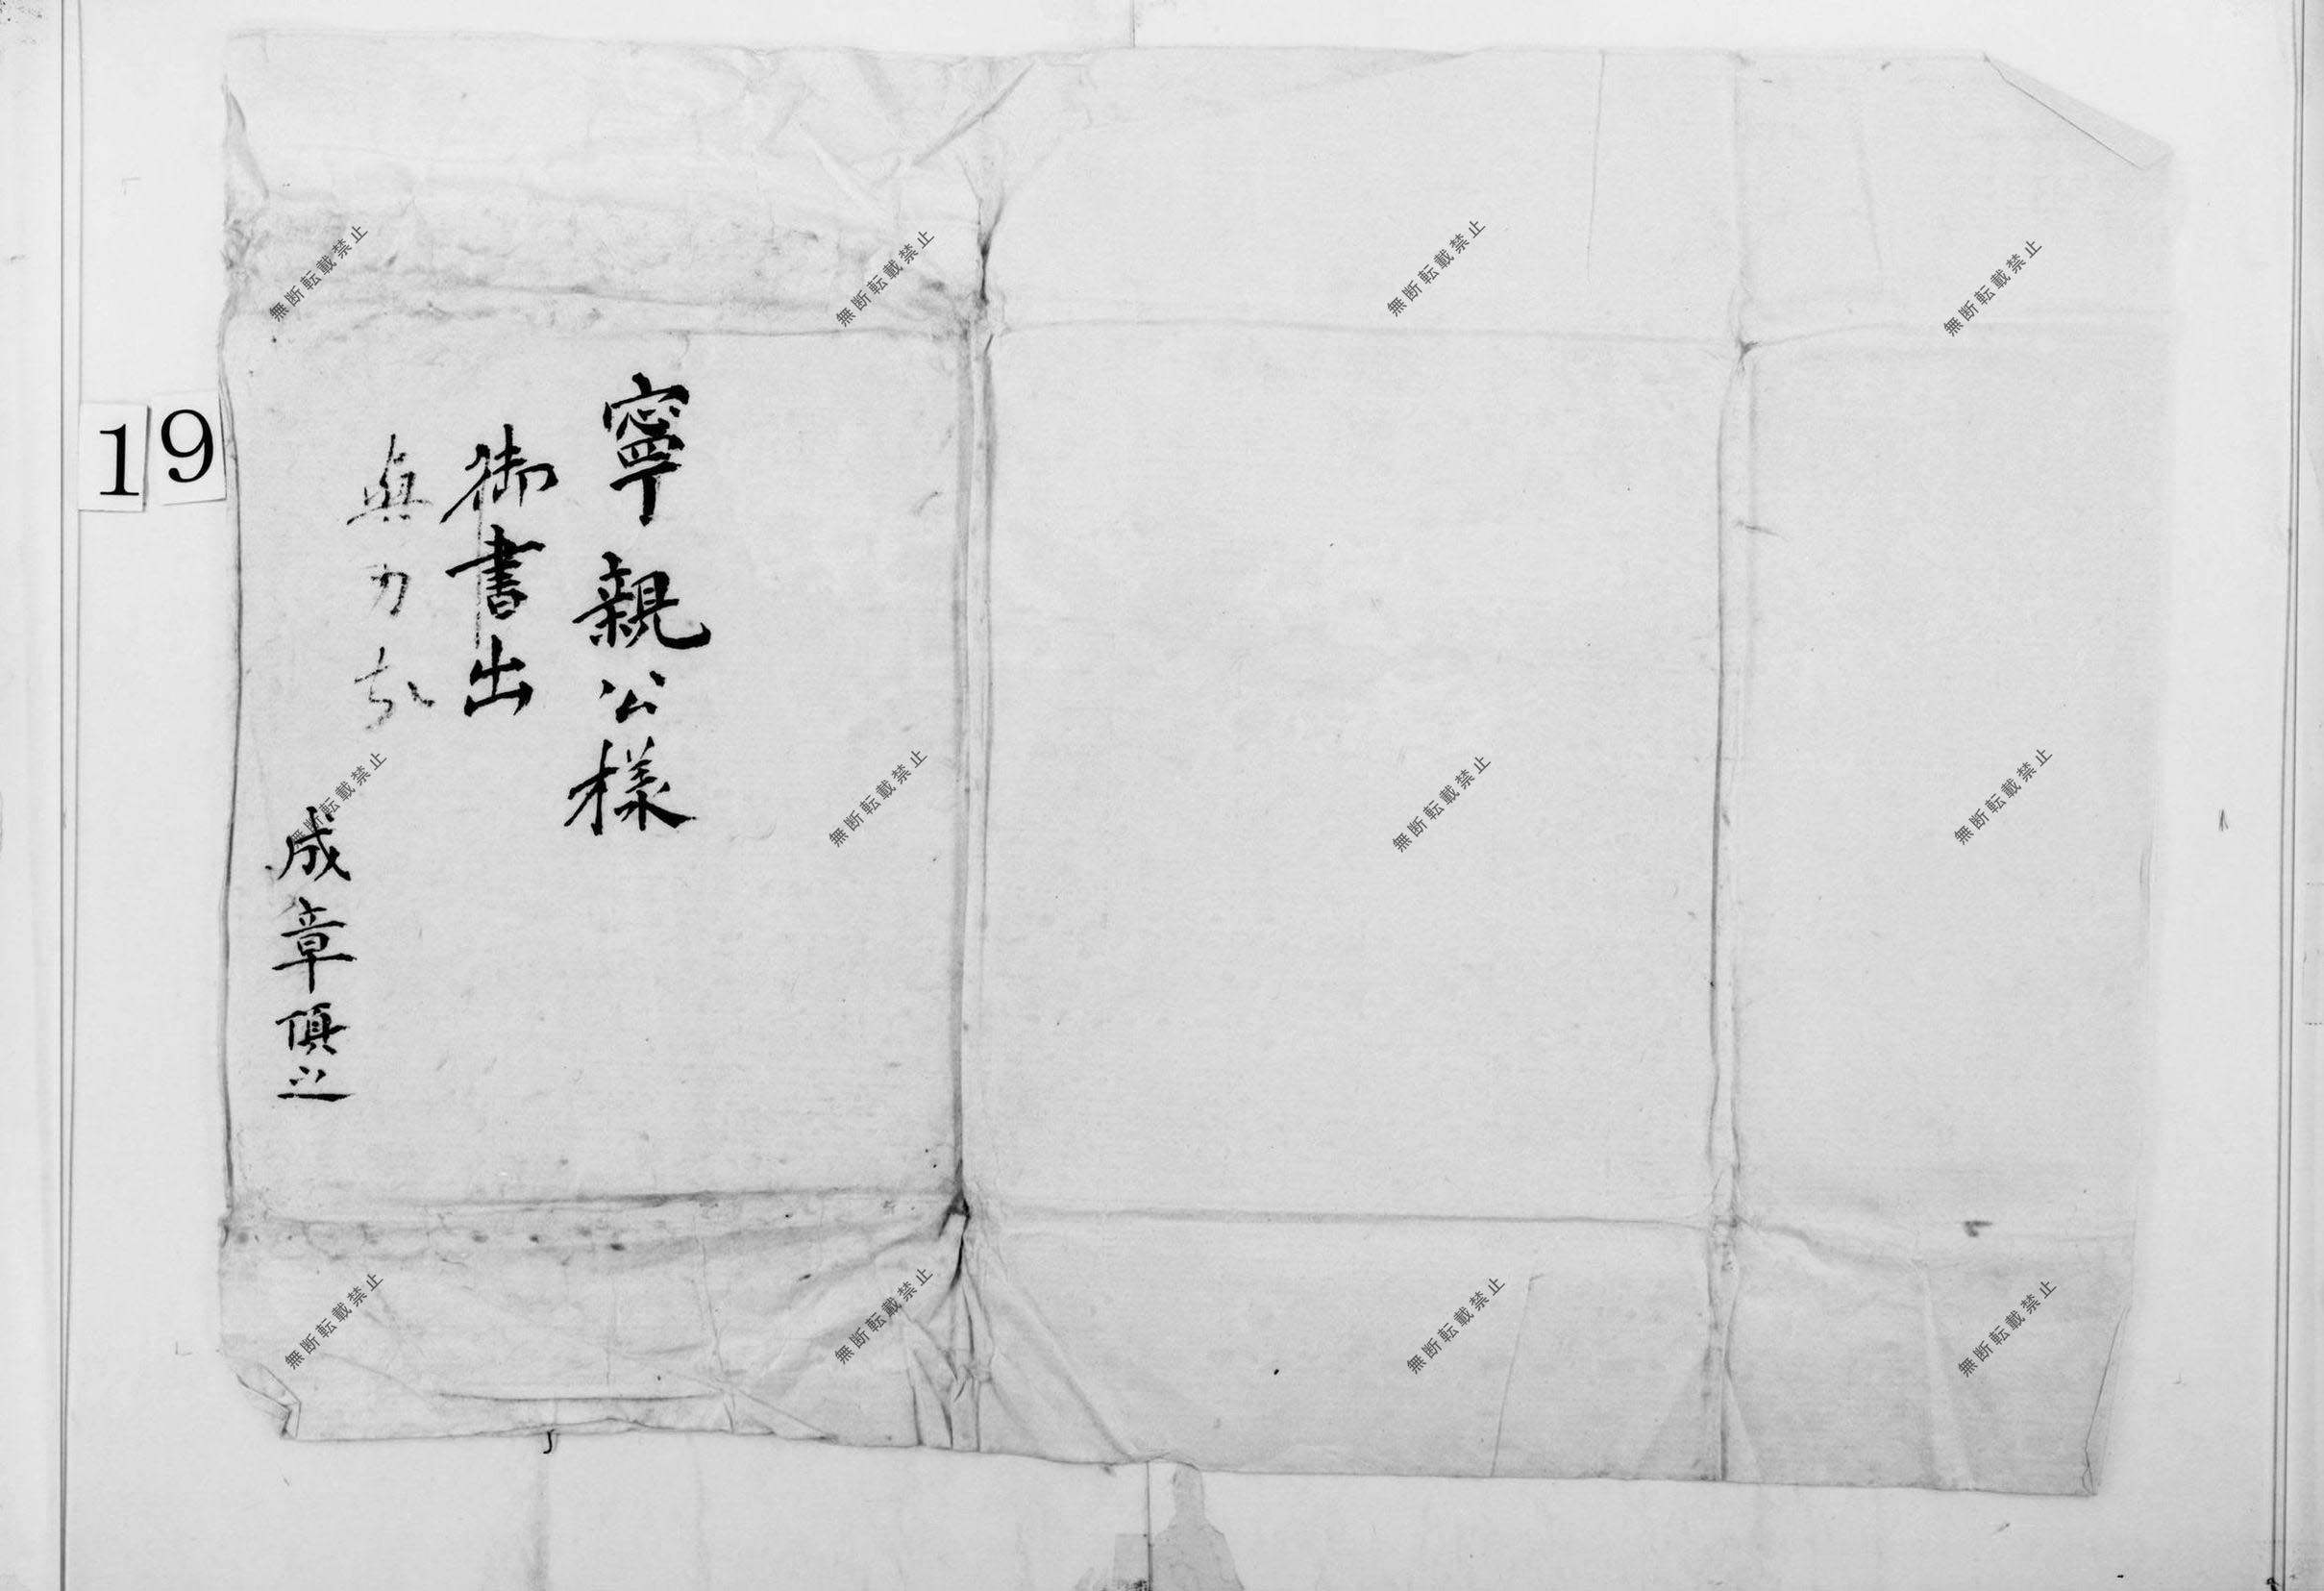 寧親公様
御書出
成章頂之
19
無断転載禁止
無断転載禁止
無断転載禁止
無断転載禁止
無断転載禁止
無断転載禁止
無断転載禁止
無断転載禁止
無断転載禁止
無断転載禁止
無断転載禁止
無断転載禁止